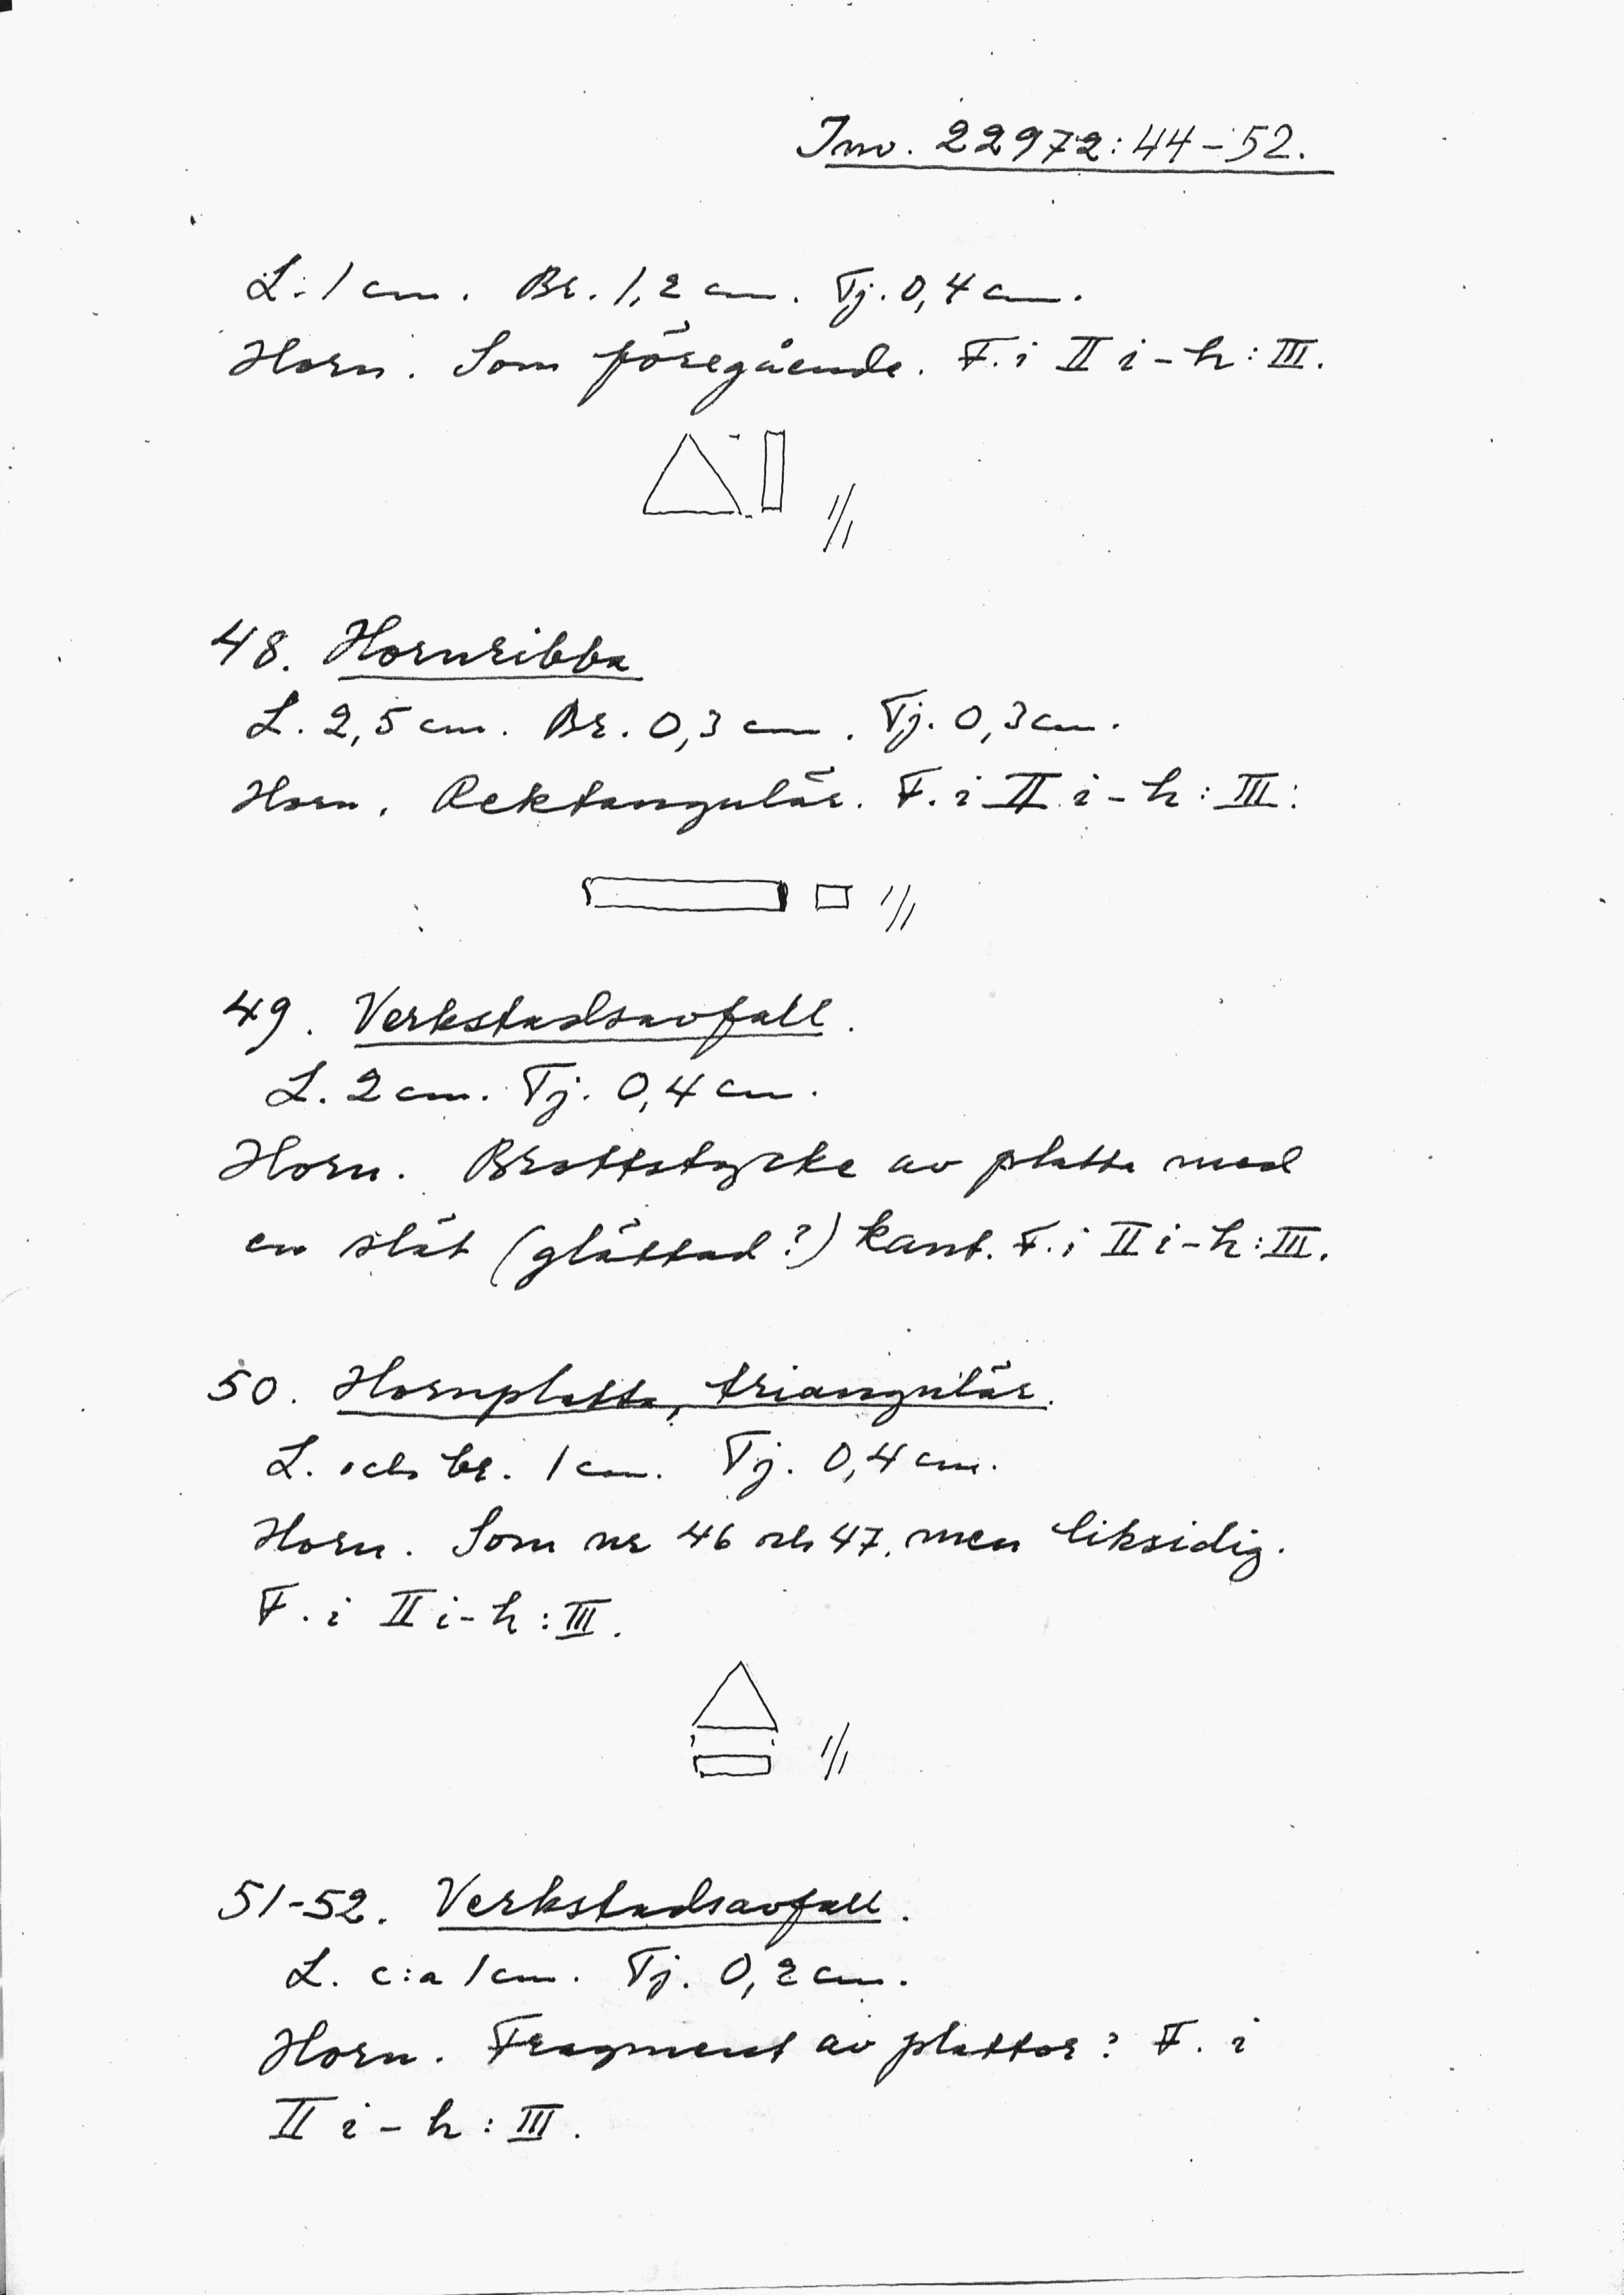 Inv. 22972:44-52.
L. 1 cm. Br. 1,2 cm. Tj. 0,4 cm.
Horn. Som föregående. F. i II i-h:III.
1/1
48. Hornribba
L. 2,5 cm. Br. 0,3 cm. Tj. 0,3 cm.
Horn. Rektangulär. F. i II i-h:III.
1/1
49. Verkstadsavfall.
L. 2 cm. Tj. 0,4 cm.
Horn. Brottstycke av platta med
en slät (glättad?) kant. F. i II i-h:III.
50. Hornplatta, triangulär.
L. och br. 1 cm. Tj. 0,4 cm.
Horn. Som nr 46 och 47, men liksidig.
F. i II i-h:III.
1/1
51-52. Verkstadsavfall.
L. c:a 1 cm. Tj. 0,2 cm.
Horn. Fragment av plattor? F. i
II i-h:III.